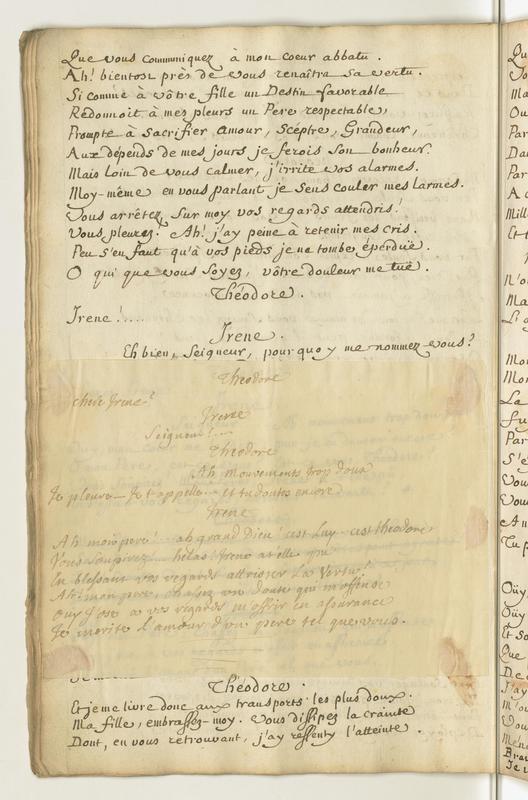 Que vous communiquez à mon coeur abbatu.
Ah! bientost près de vous renaîtra sa vertu.
Si comme à vôtre fille un Destin favorable
Redonnoit à mes pleurs un Pere respectable,
Prompte à sacrifier amour, Scéptre, Grandeur,
Aux dépends de mes jours je ferois son bonheur.
Mais loin de vous calmer, j'irrite vos alarmes.
Moy-même en vous parlant je sens couler mes larmes.
Vous arrêtez sur moy vos regards attendris!
Vous pleurez. Ah! j'ay peine à retenir mes cris.
Peu s'en faut qu'à vos pieds je ne tombe éperduë.
O qui que vous soyez, vôtre douleur me tuë.
Théodore.
Irene!....
Irene.
Eh bien, Seigneur, pourquoy me nommez-vous?
Theodore
chere Irene!
Irene
Seigneur!....
Theodore
Ah mouvements trop doux
Je pleure – Je t'appelle – et tu doutes encore
Irene
Ah mon pere! – ah grand Dieu! c'est luy – c'est theodore
Vous soupirez! – helas! Irene at elle pu
En blessant vos regards attrister la vertu!
Ah! mon pere, chassez un doute qui m'offense
Ouy J'ose a vos regards m'offrir en assurance
Je merite l'amour d'un pere tel que vous.
Théodore.
Et je me livre donc aux transports les plus doux.
Ma fille, embrassez-moy. Vous dissipez la crainte
Dont, en vous retrouvant, j'ay ressenty l'atteinte.